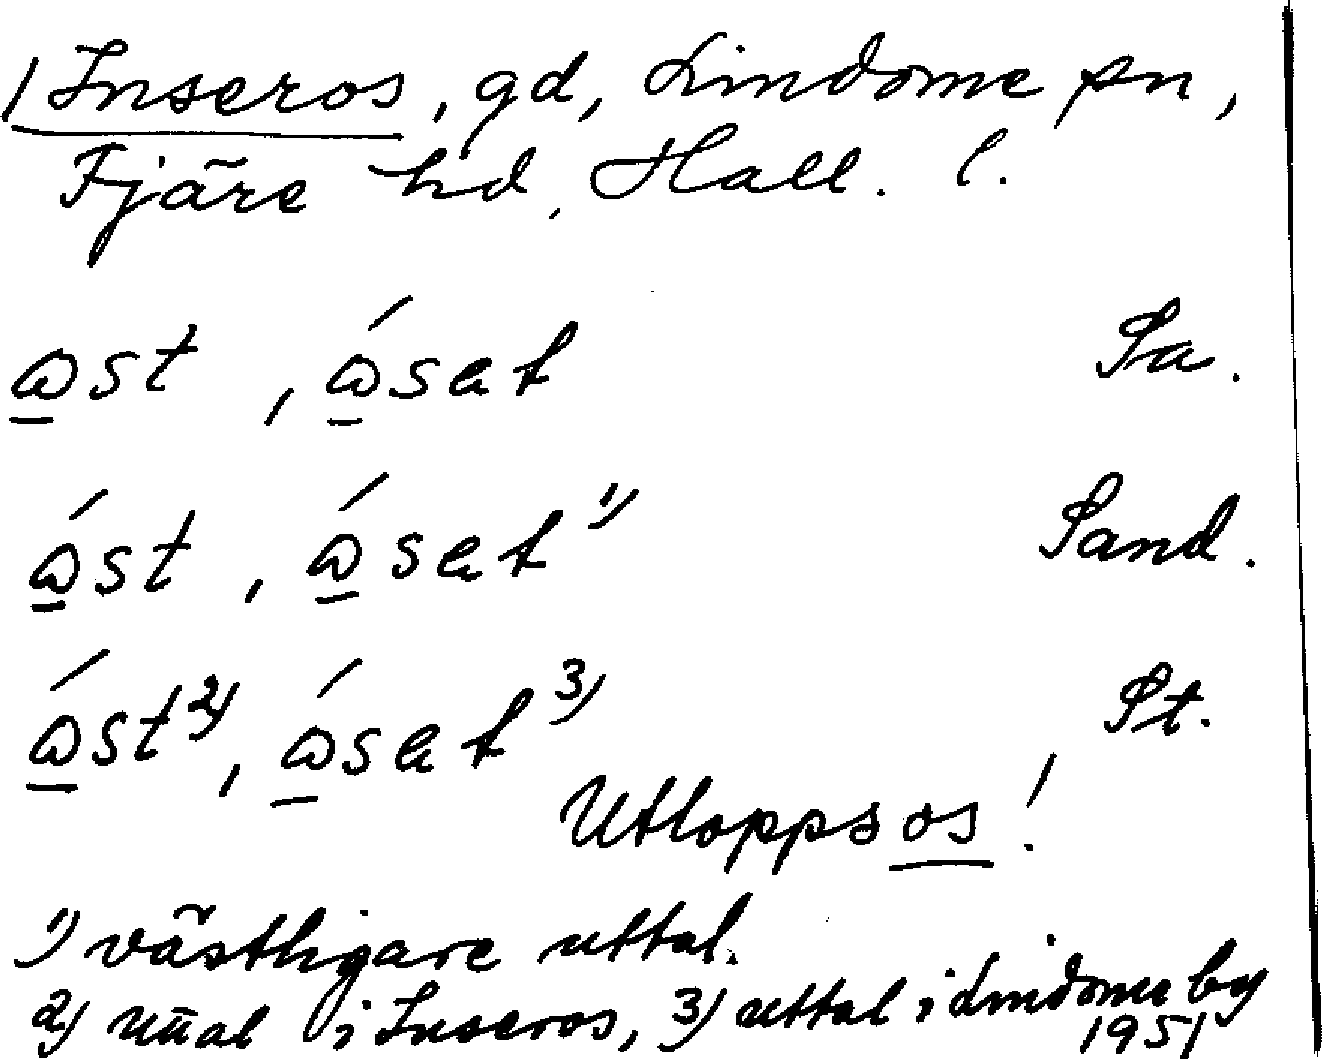 1) Inseros, gd, Lindome sn,
Fjäre hd, Hall. l.
ω̲st , ώ̲sət Sa.
ώ̲st , ώ̲sət 1) Sand.
ώ̲st 2), ώ̲sət 3) St.
Utloppsos!
1) västligare uttal.
2) uttal i Inseros, 3) uttal i Lindome by
1951